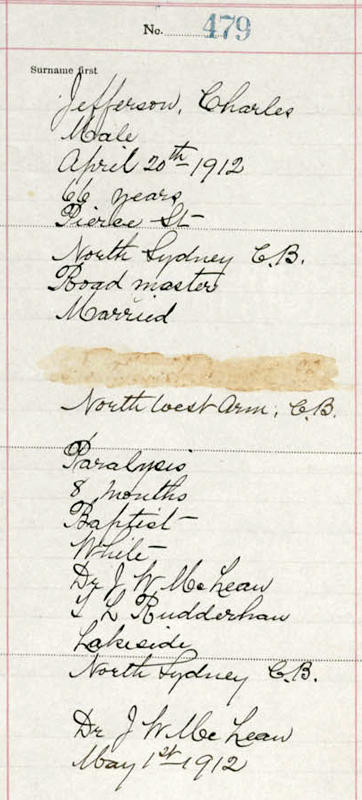 No. 479
Surname first
Jefferson, Charles
Male
April 20th 1912
66 years
Pierce St
North Sydney C.B.
Road master
Married
North West Arm, C.B.
Paralysis
8 months
Baptist
White
Dr J W McLean
L Rudderham
Lakeside
North Sydney C.B.
Dr J W McLean
May 1st 1912